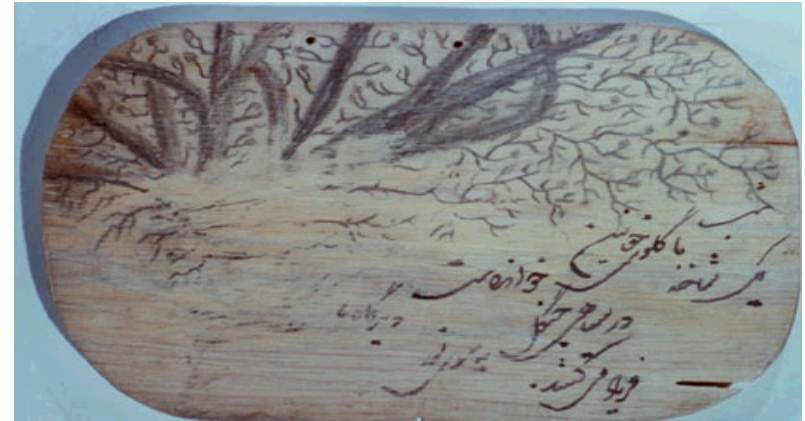 شب
با گلوی خونین
خوانده ست
دیرگاه
یک شاخه
در سیاهی جنگل
به سوی نور
فریاد می کشد.